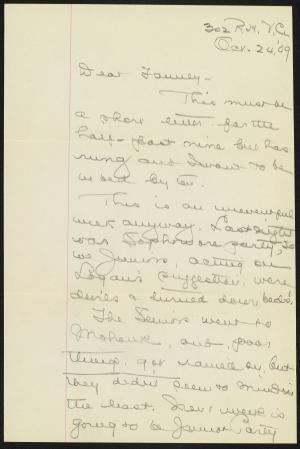 302 R.H. V.C.
Oct. 24, '09
Dear Family -
This must be
a short letter for the
half-past nine bell has
rung and I want to be
in bed by ten.
This is an uneventful
week anyway. Last night
was Sophomore party, so
we Juniors, acting on
Logan's suggestion, were
devils & turned down beds.
The Seniors went to
Mohawk, and, poor
things, got rained on, but
they didn't seem to mind in
the least. Next week is
going to be Junior party